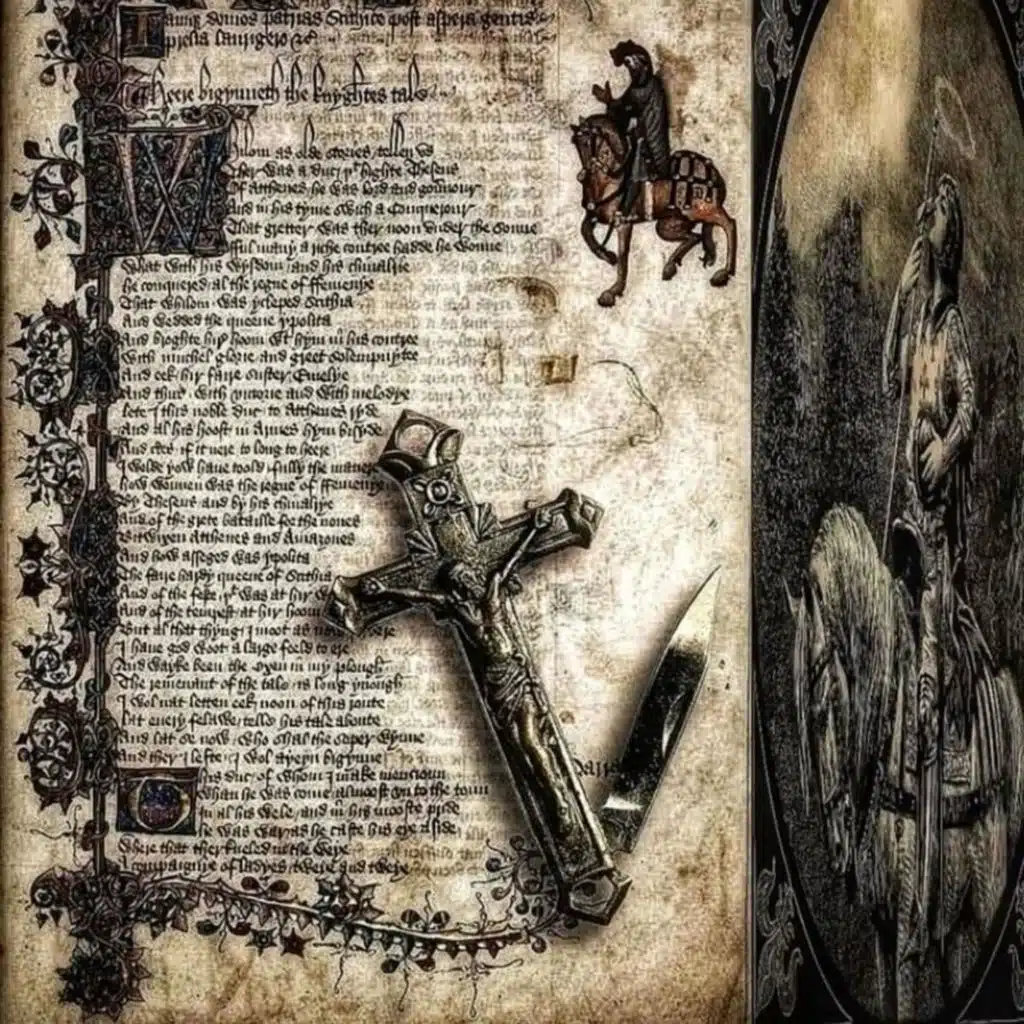 Iamque domos patrias Scithice post aspera gentis
prelia laurigero &c
Heere bigynneth the knyghtes tale
Whilom as olde stories tellen us
Ther was a duc þt highte Theseus
Of Atthenes he was lord and gouernour
And in his tyme swich a Conquerour
That gretter was ther noon vnder the sonne
fful many a riche contree hadde he wonne
What with his wysdom and his chiualrie
he conquered al the regne of ffemenye
That whilom was ycleped Scithia
And wedded the queene ypolita
And broghte hire hoom with hym in his contree
With muchel glorie and greet solempnytee
And eek hir faire suster Emelye
And thus with victorie and with melodye
lete I this noble duc to Atthenes ryde
And al his hoost in Armes hym bisyde
And certes if it nere to long to heere
I wolde yow haue toold fully the manere
how wonnen was the regne of ffemenye
By Theseus and by his chiualrye
And of the grete bataille for the nones
Bitwixen Atthenes and Amazones
And how asseged was ypolita
The faire hardy queene of Scithia
And of the feste þt was at hir
And of the tempest at hir hoom
But al that thyng I moot as
I haue god woot a large feeld to ere
And wayke been the oxen in my plough
The remenant of the tale is long ynough
I wol nat letten eek noon of this route
lat euery felawe telle his tale aboute
And lat se now who shal the soper wynne
And ther I lefte I wol ayeyn bigynne
This duc of whom I make mencioun
Whan he was come almoost vn to the toun
In al his wele and in his mooste pride
he was war as he caste his eye aside
Where that ther kneled in the weye
A compaignie of ladyes tweye and tweye